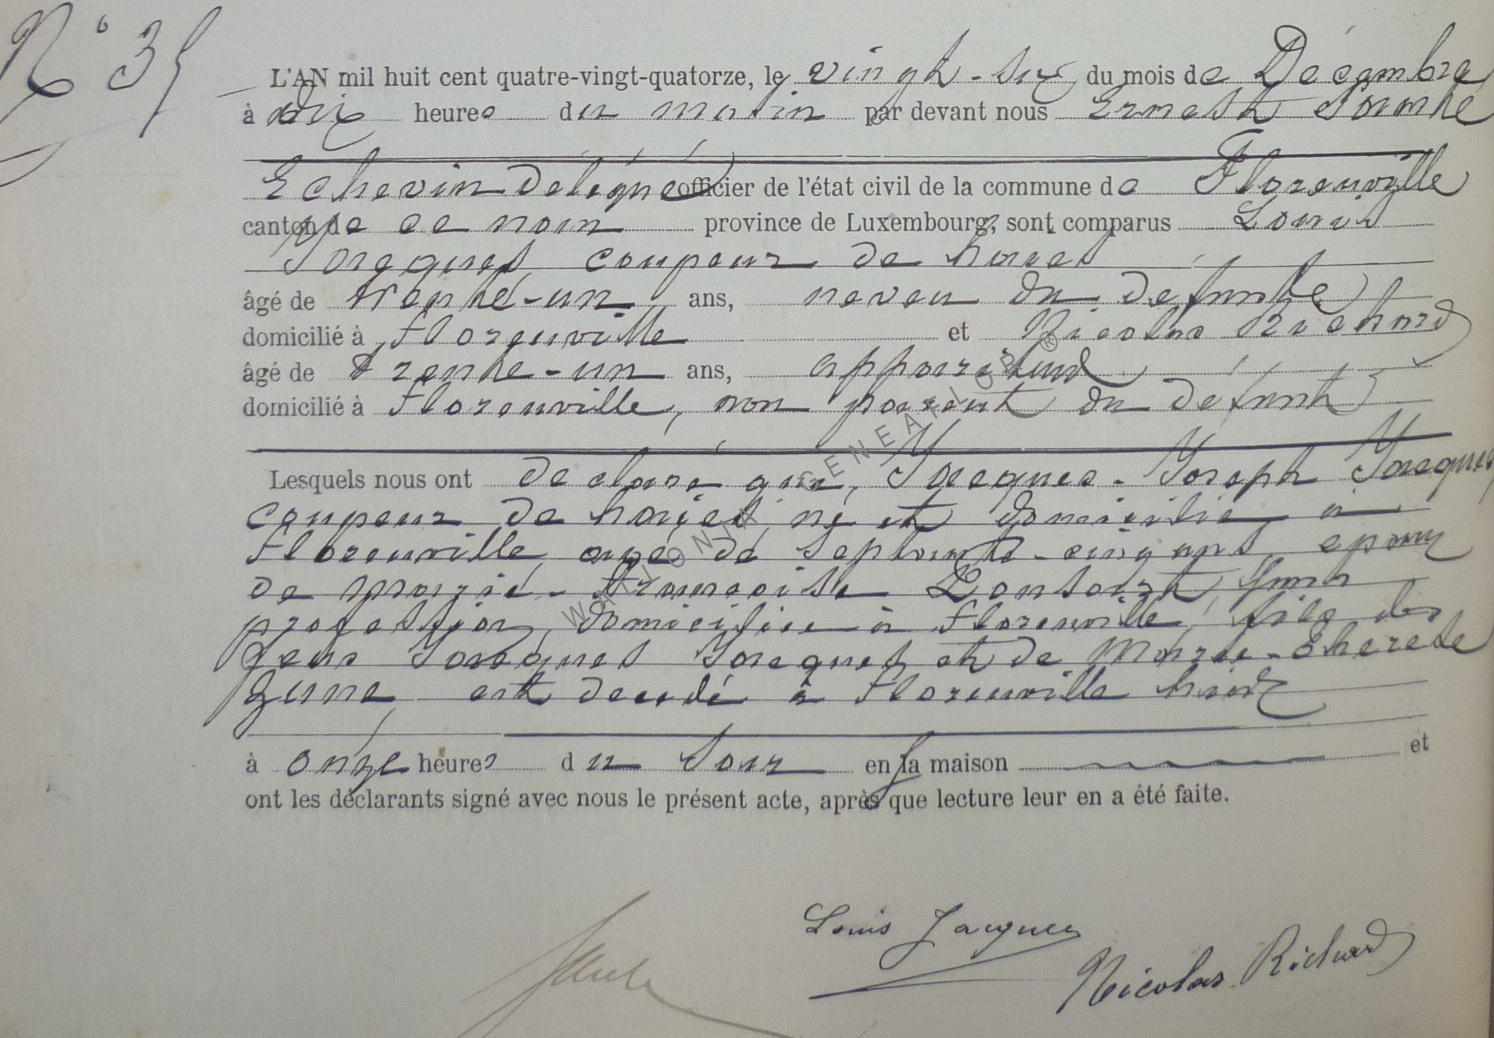 N° 35
L'AN mil huit cent quatre-vingt-quatorze, le vingt-six du mois de Décembre
à dix heures du matin par devant nous Ernest
Echevin délégué officier de l'état civil de la commune de Florenville
canton de ce nom province de Luxembourg, sont comparus Louis
Jacques, coupeur de haies
âgé de trente-un ans, neveu du défunt
domicilié à Florenville et Nicolas Richard
âgé de trente-un ans, appariteur
domicilié à Florenville, non parent du défunt
Lesquels nous ont déclaré que, Jacques-Joseph Jacques
coupeur de haies, né et domicilié à
Florenville, agé de septante-cinq ans, epoux
de Marie-Françoise Lansart, sans
profession, domiciliée à Florenville, fils de
Jacques et de Marie-Thérèse
est decedé à Florenville hier
à onze heures du soir en sa maison et
ont les déclarants signé avec nous le présent acte, après que lecture leur en a été faite.
WALLONIA GENEALOGY ®
Louis Jacques
Nicolas Richard